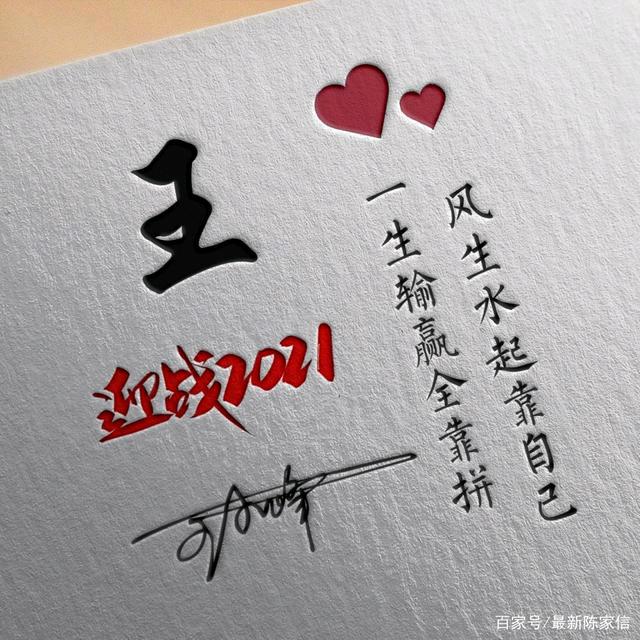 王
迎战2021
风生水起靠自己
一生输赢全靠拼
百家号/最新陈家信